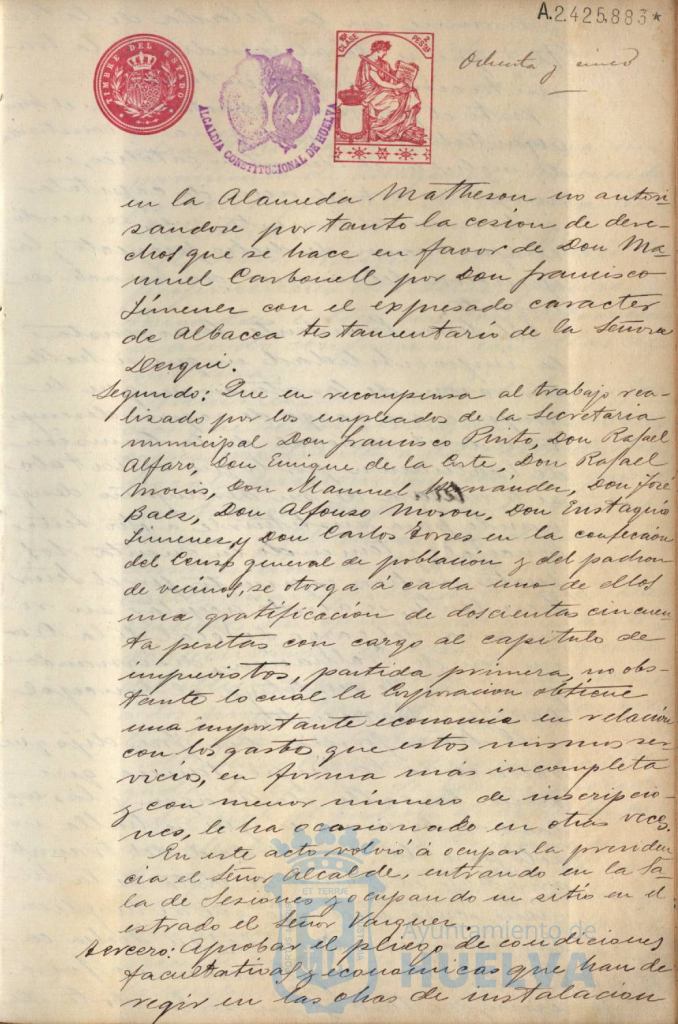 A.2.425.883*
TIMBRE DEL ESTADO
ALCALDIA CONSTITUCIONAL DE HUELVA
CLASE
PESTS
Ochenta y cinco
en la Alameda Matheson no autori-
sandose por tanto la cesion de dere-
chos que se hace en favor de Don Ma-
nuel Carbonell por Don francisco
Jimenez con el expresado caracter
de Albacea testamentario de la Señora
Derqui.
Segundo: Que en recompensa al trabajo rea-
lisado por los empleados de la Secretaria
municipal Don francisco Pinto, Don Rafael
Alfaro, Don Enrique de la Corte, Don Rafael
Don Manuel Hernández, Don José
Baez, Don Alfonso Moron, Don Eustaquio
Jimenez y Don Carlos Torres en la confección
del Censo general de población y del padron
de vecinos, se otorga á cada uno de ellos
una gratificación de doscientas cincuen
ta pesetas con cargo al capitulo de
imprevistos, partida primera, no obs-
tante lo cual la Corporacion obtiene
una importante economia en relación
con los gastos que estos mismos ser-
vicios, en forma más incompleta
y con menor número de inscripcio-
nes, le ha ocasionado en otras veces.
En este acto volvió á ocupar la presiden
cia el Señor Alcalde, entrando en la Sa-
la de Sesiones y ocupando su sitio en el
estrado el Señor Vazquez
tercero: Aprobar el pliego de condiciones
facultativas y económicas que han de
regir en las obras de instalacion
ET TERRÆ
Ayuntamiento de
HUELVA